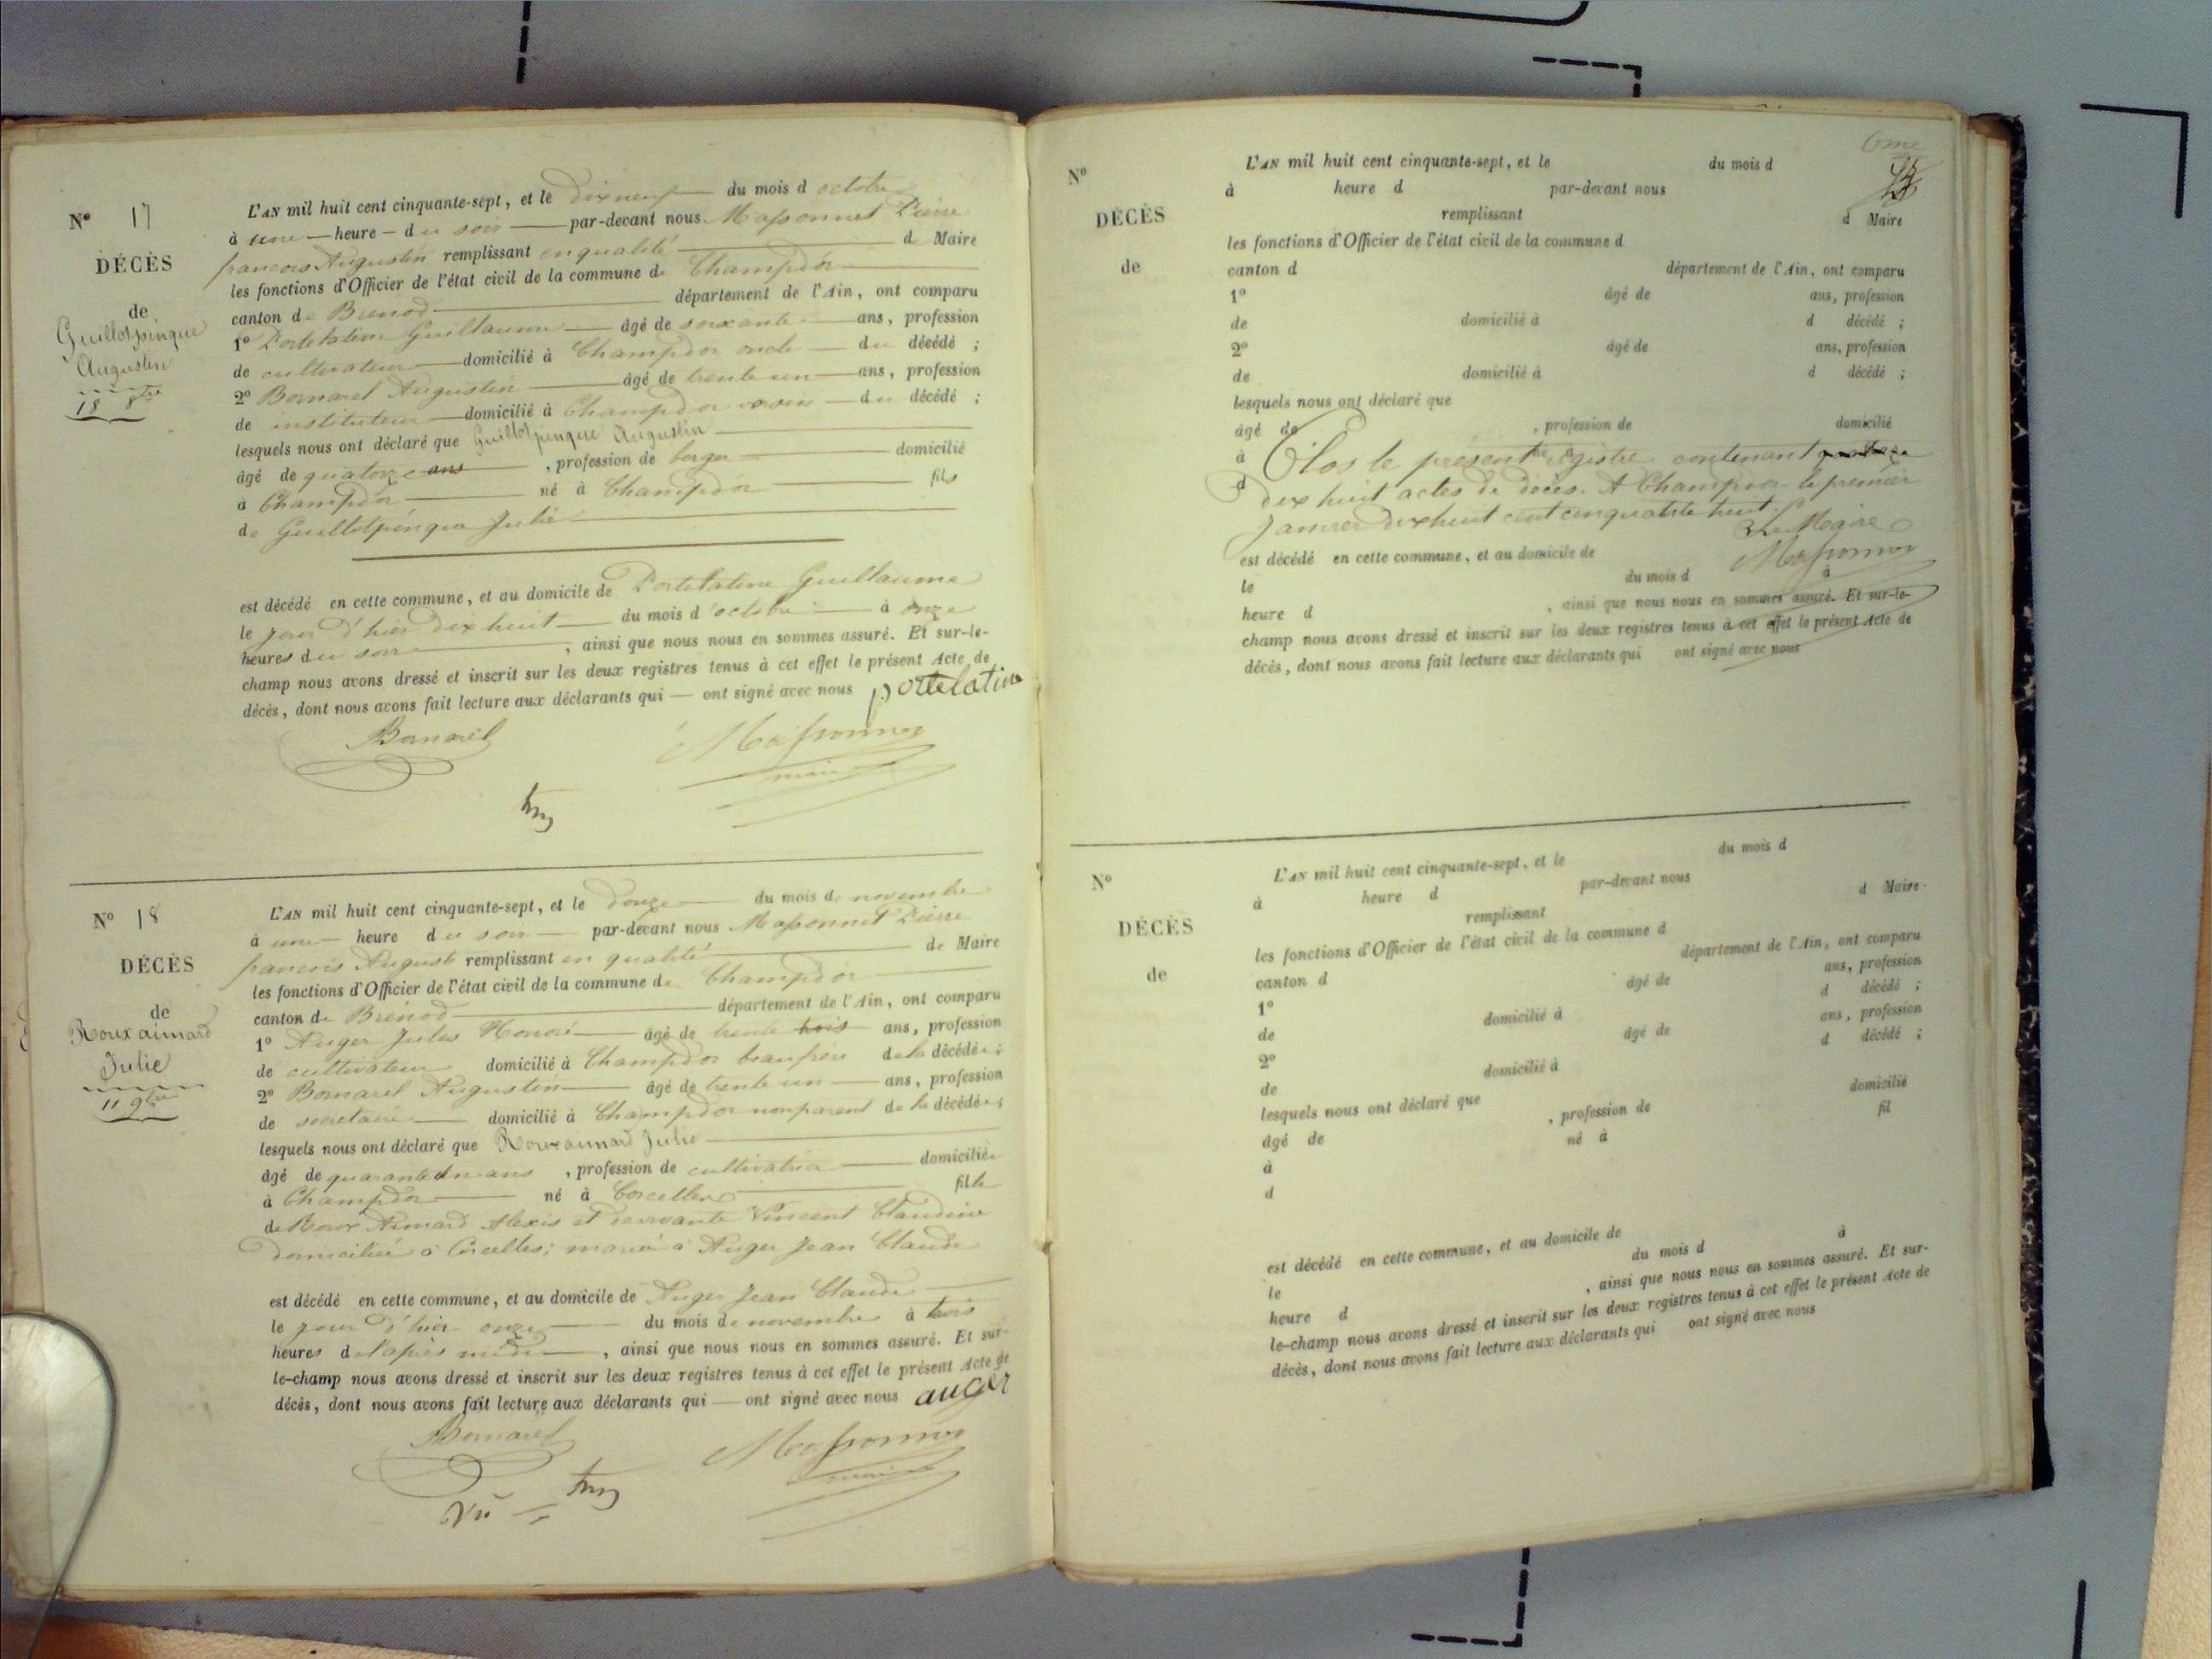 N° 17
DÉCÈS
de
Guillotpingue
Augustin
18 8bre
L'AN mil huit cent cinquante-sept, et le dix neuf du mois d octobre
à une heure du soir par-devant nous Massonnet Pierre
francois Augustin remplissant en qualité de Maire
les fonctions d'Officier de l'état civil de la commune de Champdor
canton de Brénod département de l'Ain, ont comparu
1° Portelatine Guillaume âgé de soixante ans, profession
de cultivateur domicilié à Champdor oncle du décédé ;
2° Bornarel Augustin âgé de trente un ans, profession
de instituteur domicilié à Champdor voisin du décédé ;
lesquels nous ont déclaré que Guillotpingue Augustin
âgé de quatorze ans , profession de berger domicilié
à Champdor né à Champdor fils
de Guillotpingue Julie
est décédé en cette commune, et au domicile de Portelatine Guillaume
le jour d'hier dix huit du mois d'octobre à onze
heures du soir , ainsi que nous nous en sommes assuré. Et sur-le-
champ nous avons dressé et inscrit sur les deux registres tenus à cet effet le présent Acte de
décès, dont nous avons fait lecture aux déclarants qui ont signé avec nous portelatine
Bornarel Massonnet
maire
N° 18
DÉCÈS
de
Roux aimard
Julie
11 9bre
L'AN mil huit cent cinquante-sept, et le douze du mois de novembre
à une heure du soir par-devant nous Massonnet Pierre
francois Auguste remplissant en qualité de Maire
les fonctions d'Officier de l'état civil de la commune de Champdor
canton de Brénod département de l'Ain, ont comparu
1° Auger Jules Honoré âgé de trente trois ans, profession
de cultivateur domicilié à Champdor beaufrère de la décédée ;
2° Bornarel Augustin âgé de trente un ans, profession
de secretaire domicilié à Champdor non parent de la décédée ;
lesquels nous ont déclaré que Roux aimard Julie
âgé de quarante un ans , profession de cultivatrice domiciliée
à Champdor né à Corcelles fille
de Roux Aimard Alexis et de vivante Vincent Claudine
domiciliée à Corcelles; mariée à Auger Jean Claude
est décédé en cette commune, et au domicile de Auger Jean Claude
le jour d'hier onze du mois de novembre à trois
heures de l'après midi , ainsi que nous nous en sommes assuré. Et sur-
le-champ nous avons dressé et inscrit sur les deux registres tenus à cet effet le présent Acte de
décès, dont nous avons fait lecture aux déclarants qui ont signé avec nous auger
Bornarel Massonnet
maire
Vu
6me
N°
DÉCÈS
de
L'AN mil huit cent cinquante-sept, et le du mois d
à heure d par-devant nous
remplissant d Maire
les fonctions d'Officier de l'état civil de la commune d
canton d département de l'Ain, ont comparu
1° âgé de ans, profession
de domicilié à d décédé ;
2° âgé de ans, profession
de domicilié à d décédé ;
lesquels nous ont déclaré que
âgé de , profession de domicilié
à Clos le présent registre contenant quatorze
d dix huit actes de décès. A Champdor le premier
Janvier dix huit cent cinquante huit.
Le Maire
est décédé en cette commune, et au domicile de Massonnet
le du mois d à
heure d , ainsi que nous nous en sommes assuré. Et sur-le-
champ nous avons dressé et inscrit sur les deux registres tenus à cet effet le présent Acte de
décès, dont nous avons fait lecture aux déclarants qui ont signé avec nous
N°
DÉCÈS
de
L'AN mil huit cent cinquante-sept, et le du mois d
à heure d par-devant nous
remplissant d Maire
les fonctions d'Officier de l'état civil de la commune d
canton d département de l'Ain, ont comparu
1° âgé de ans, profession
de domicilié à d décédé ;
2° âgé de ans, profession
de domicilié à d décédé ;
lesquels nous ont déclaré que
âgé de , profession de domicilié
à né à fil
d
est décédé en cette commune, et au domicile de
le du mois d à
heure d , ainsi que nous nous en sommes assuré. Et sur-
le-champ nous avons dressé et inscrit sur les deux registres tenus à cet effet le présent Acte de
décès, dont nous avons fait lecture aux déclarants qui ont signé avec nous